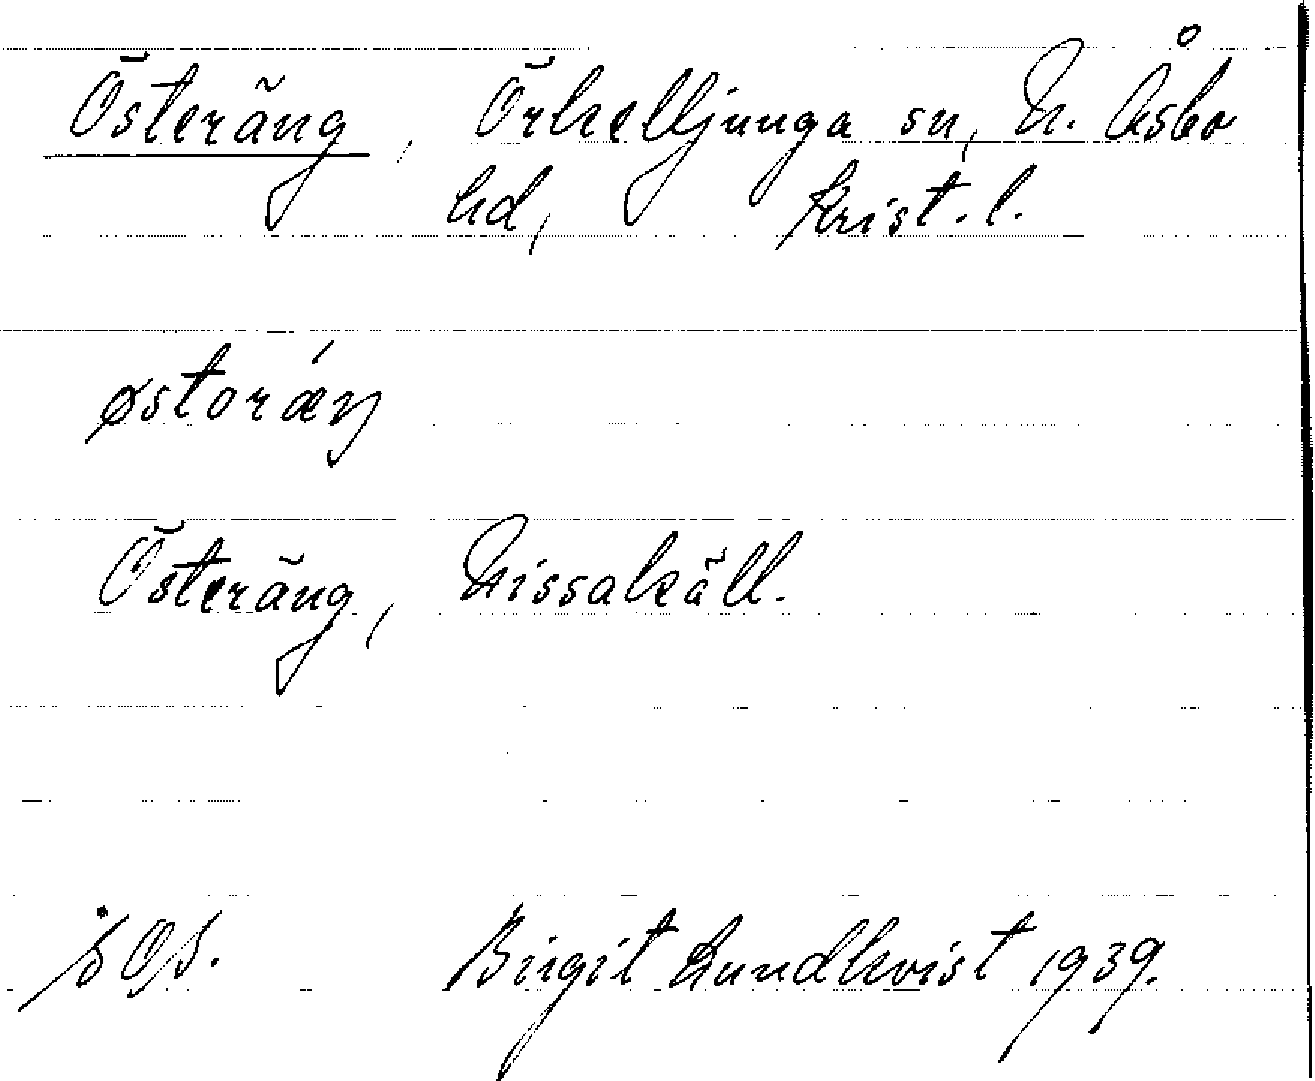 Österäng, Örkelljunga sn, N. Åsbo
hd, Krist. l.
østoráŋ
Österäng, Nissakäll.
SOS. Birgit Lundkvist 1939.